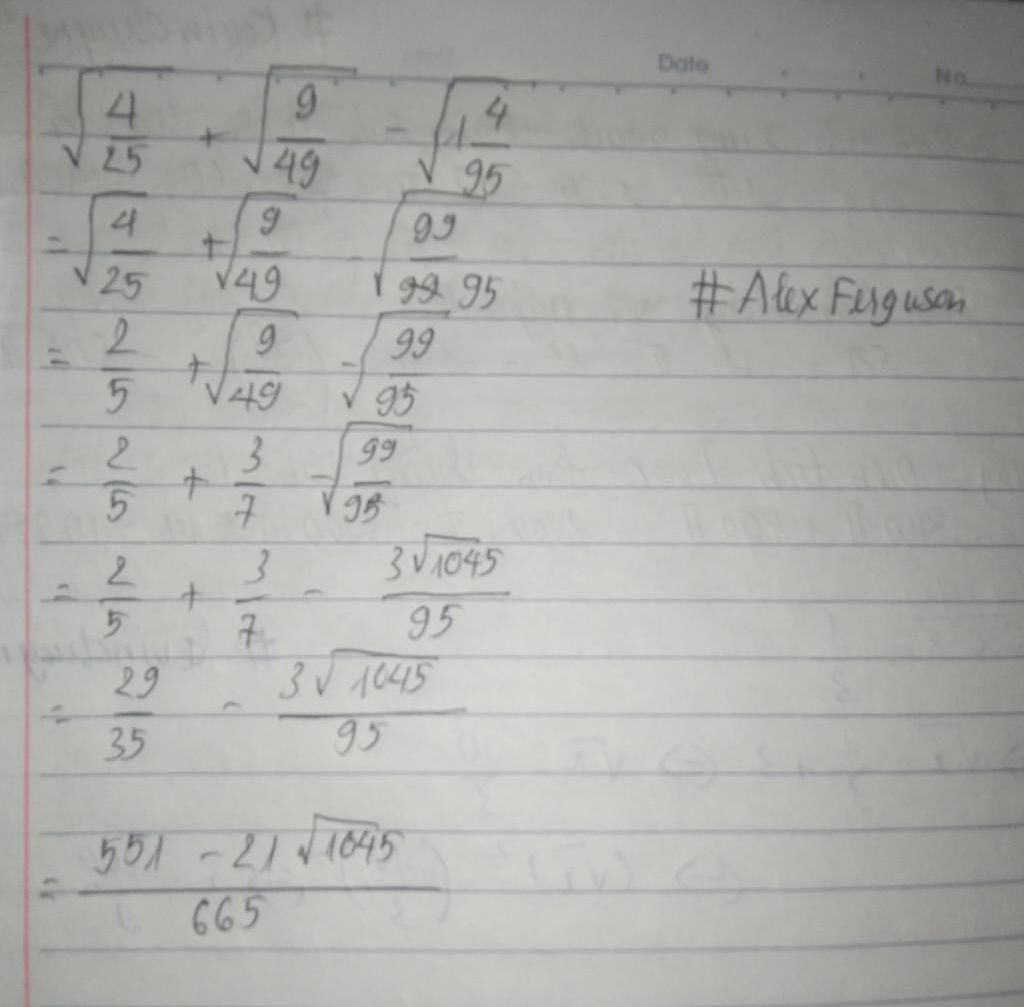 Date No
√(4/25) + √(9/49) - √(1 4/95)
= √(4/25) + √(9/49) - √(99/95)
#AlexFerguson
= 2/5 + √(9/49) - √(99/95)
= 2/5 + 3/7 - √(99/95)
= 2/5 + 3/7 - 3√1045/95
= 29/35 - 3√1045/95
= (551 - 21√1045)/665